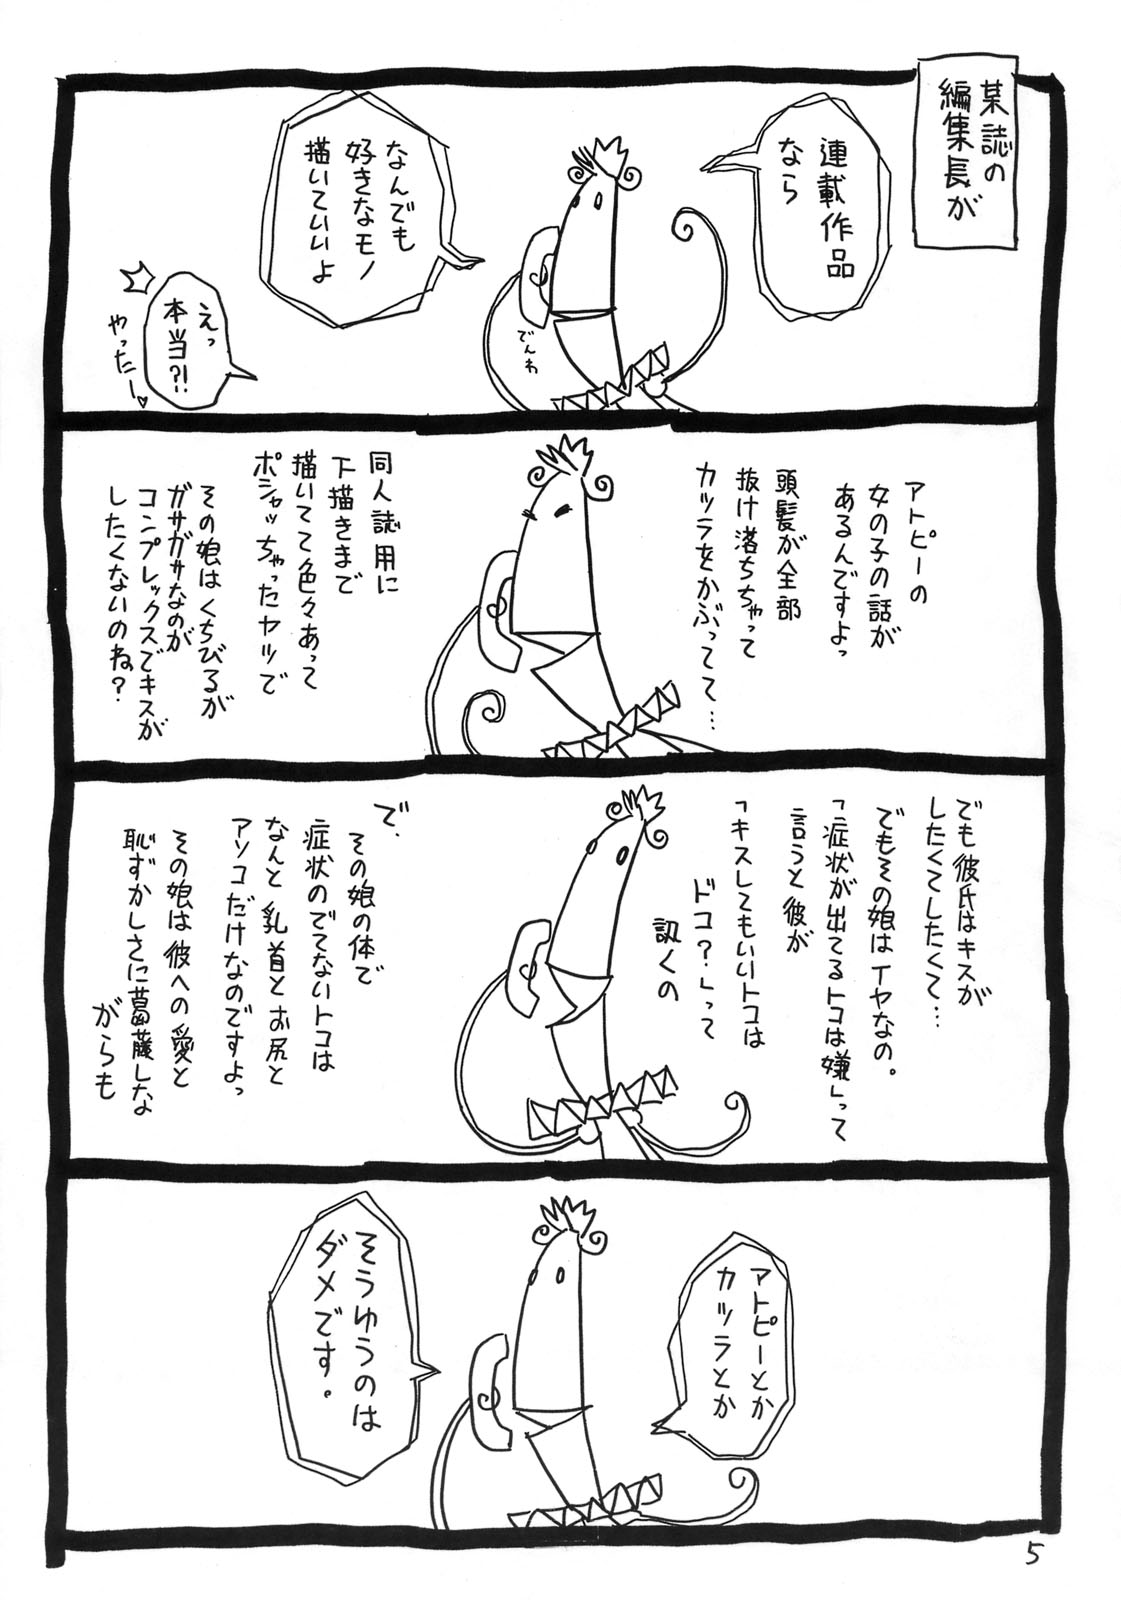 某誌の
編集長が
連載作品
なら
なんでも
好きなモノ
描いていいよ
でんわ
えっ
本当?!
やったー♡
アトピーの
女の子の話が
あるんですよっ
頭髪が全部
抜け落ちちゃって
カツラをかぶってて…
同人誌用に
下描きまで
描いてて色々あって
ポシャッちゃったヤツで
その娘はくちびるが
ガサガサなのが
コンプレックスでキスが
したくないのね?
でも彼氏はキスが
したくてしたくて…
でもその娘はイヤなの。
「症状が出てるトコは嫌」って
言うと彼が
「キスしてもいいトコは
ドコ?」って
訊くの
で、
その娘の体で
症状のでてないトコは
なんと乳首とお尻と
アソコだけなのですよっ
その娘は彼への愛と
恥ずかしさに葛藤しな
がらも
アトピーとか
カツラとか
そうゆうのは
ダメです。
5